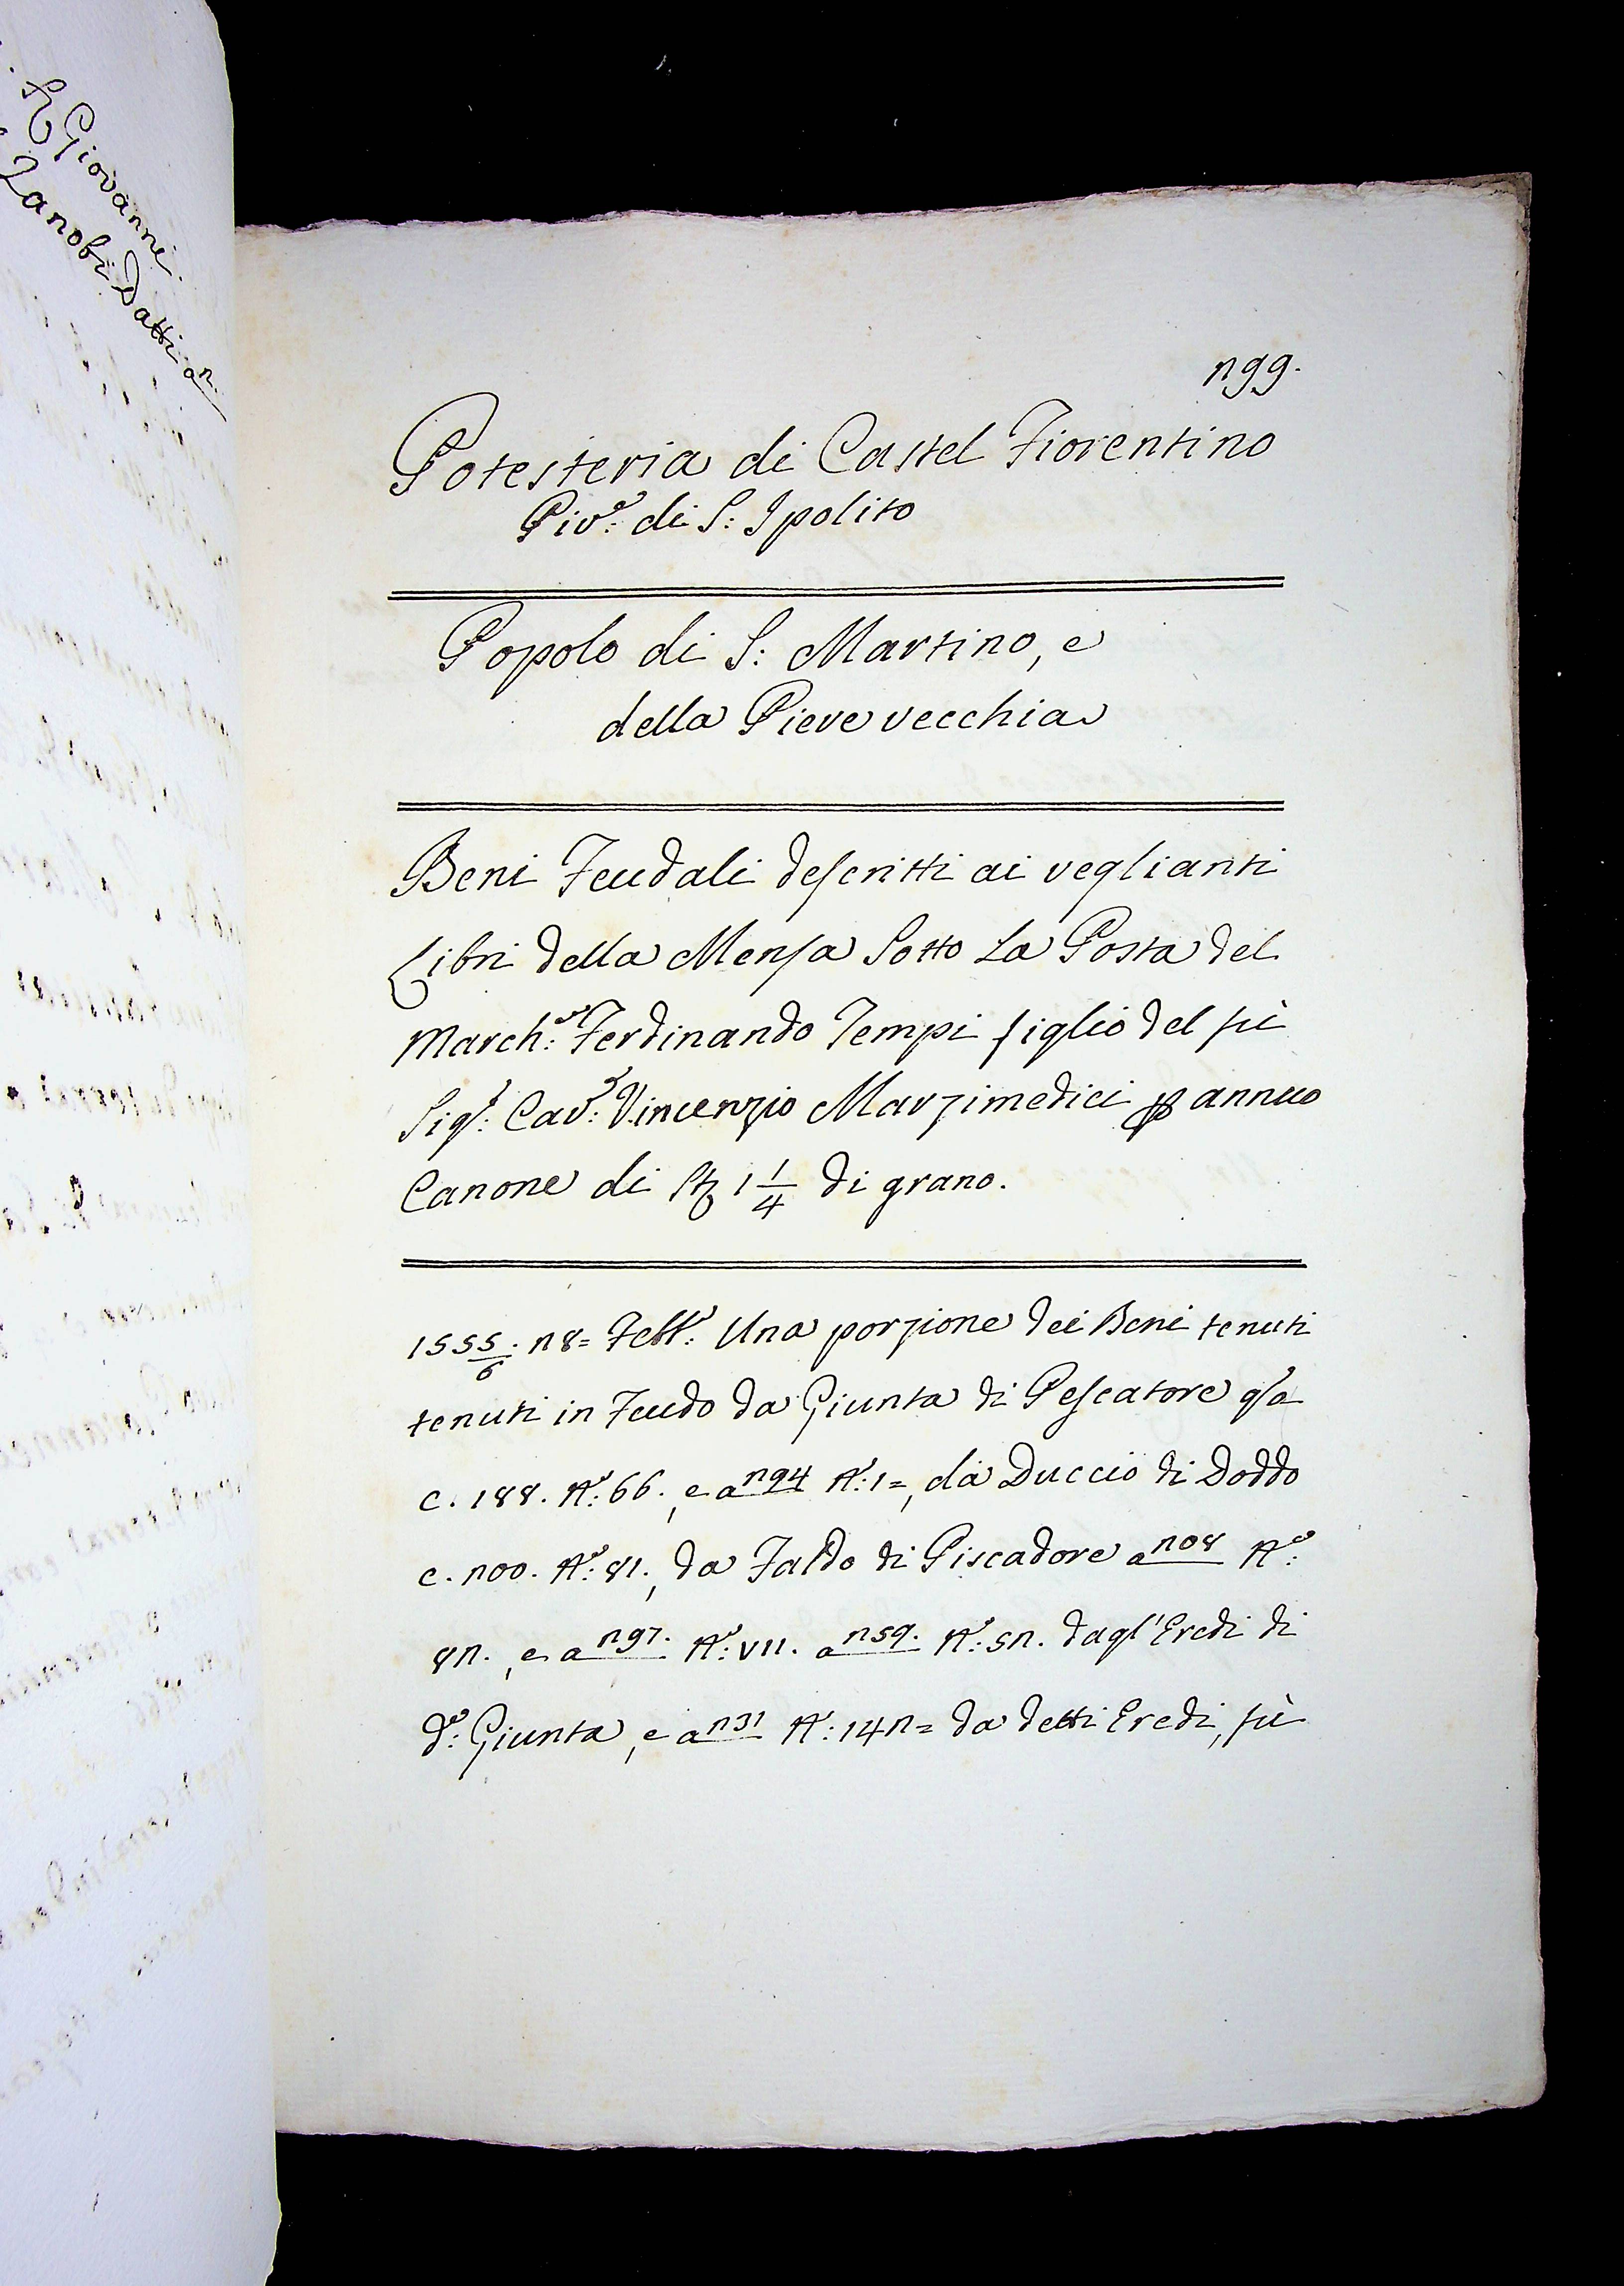 Giovanni
Zanobi Datti
299.
Potesteria di Castel Fiorentino
Piv.e di S: Ipolito
Popolo di S: Martino, e
della Pieve vecchia
Beni Feudali descritti ai veglianti
Libri della Mensa Sotto La Posta del
March:e Ferdinando Tempi figlio del fù
Sig:r Cav:r Vincenzio Marzimedici p annuo
Canone di St 1 1/4 di grano.
1555/6. 28= Febb:o Una porzione dei Beni tenuti
tenuti in Feudo da Giunta di Pescatore q/a
c. 188. N:o 66., e a 294 N:o 1=, da Duccio di Doddo
c. 200. N:o 81., da Faldo di Piscadore a 208 N:o
82., e a 297. N:o VII. a 259. N:o 52. dagl'Eredi di
d:o Giunta, e a 231 N:o 142= da detti Eredi, fù